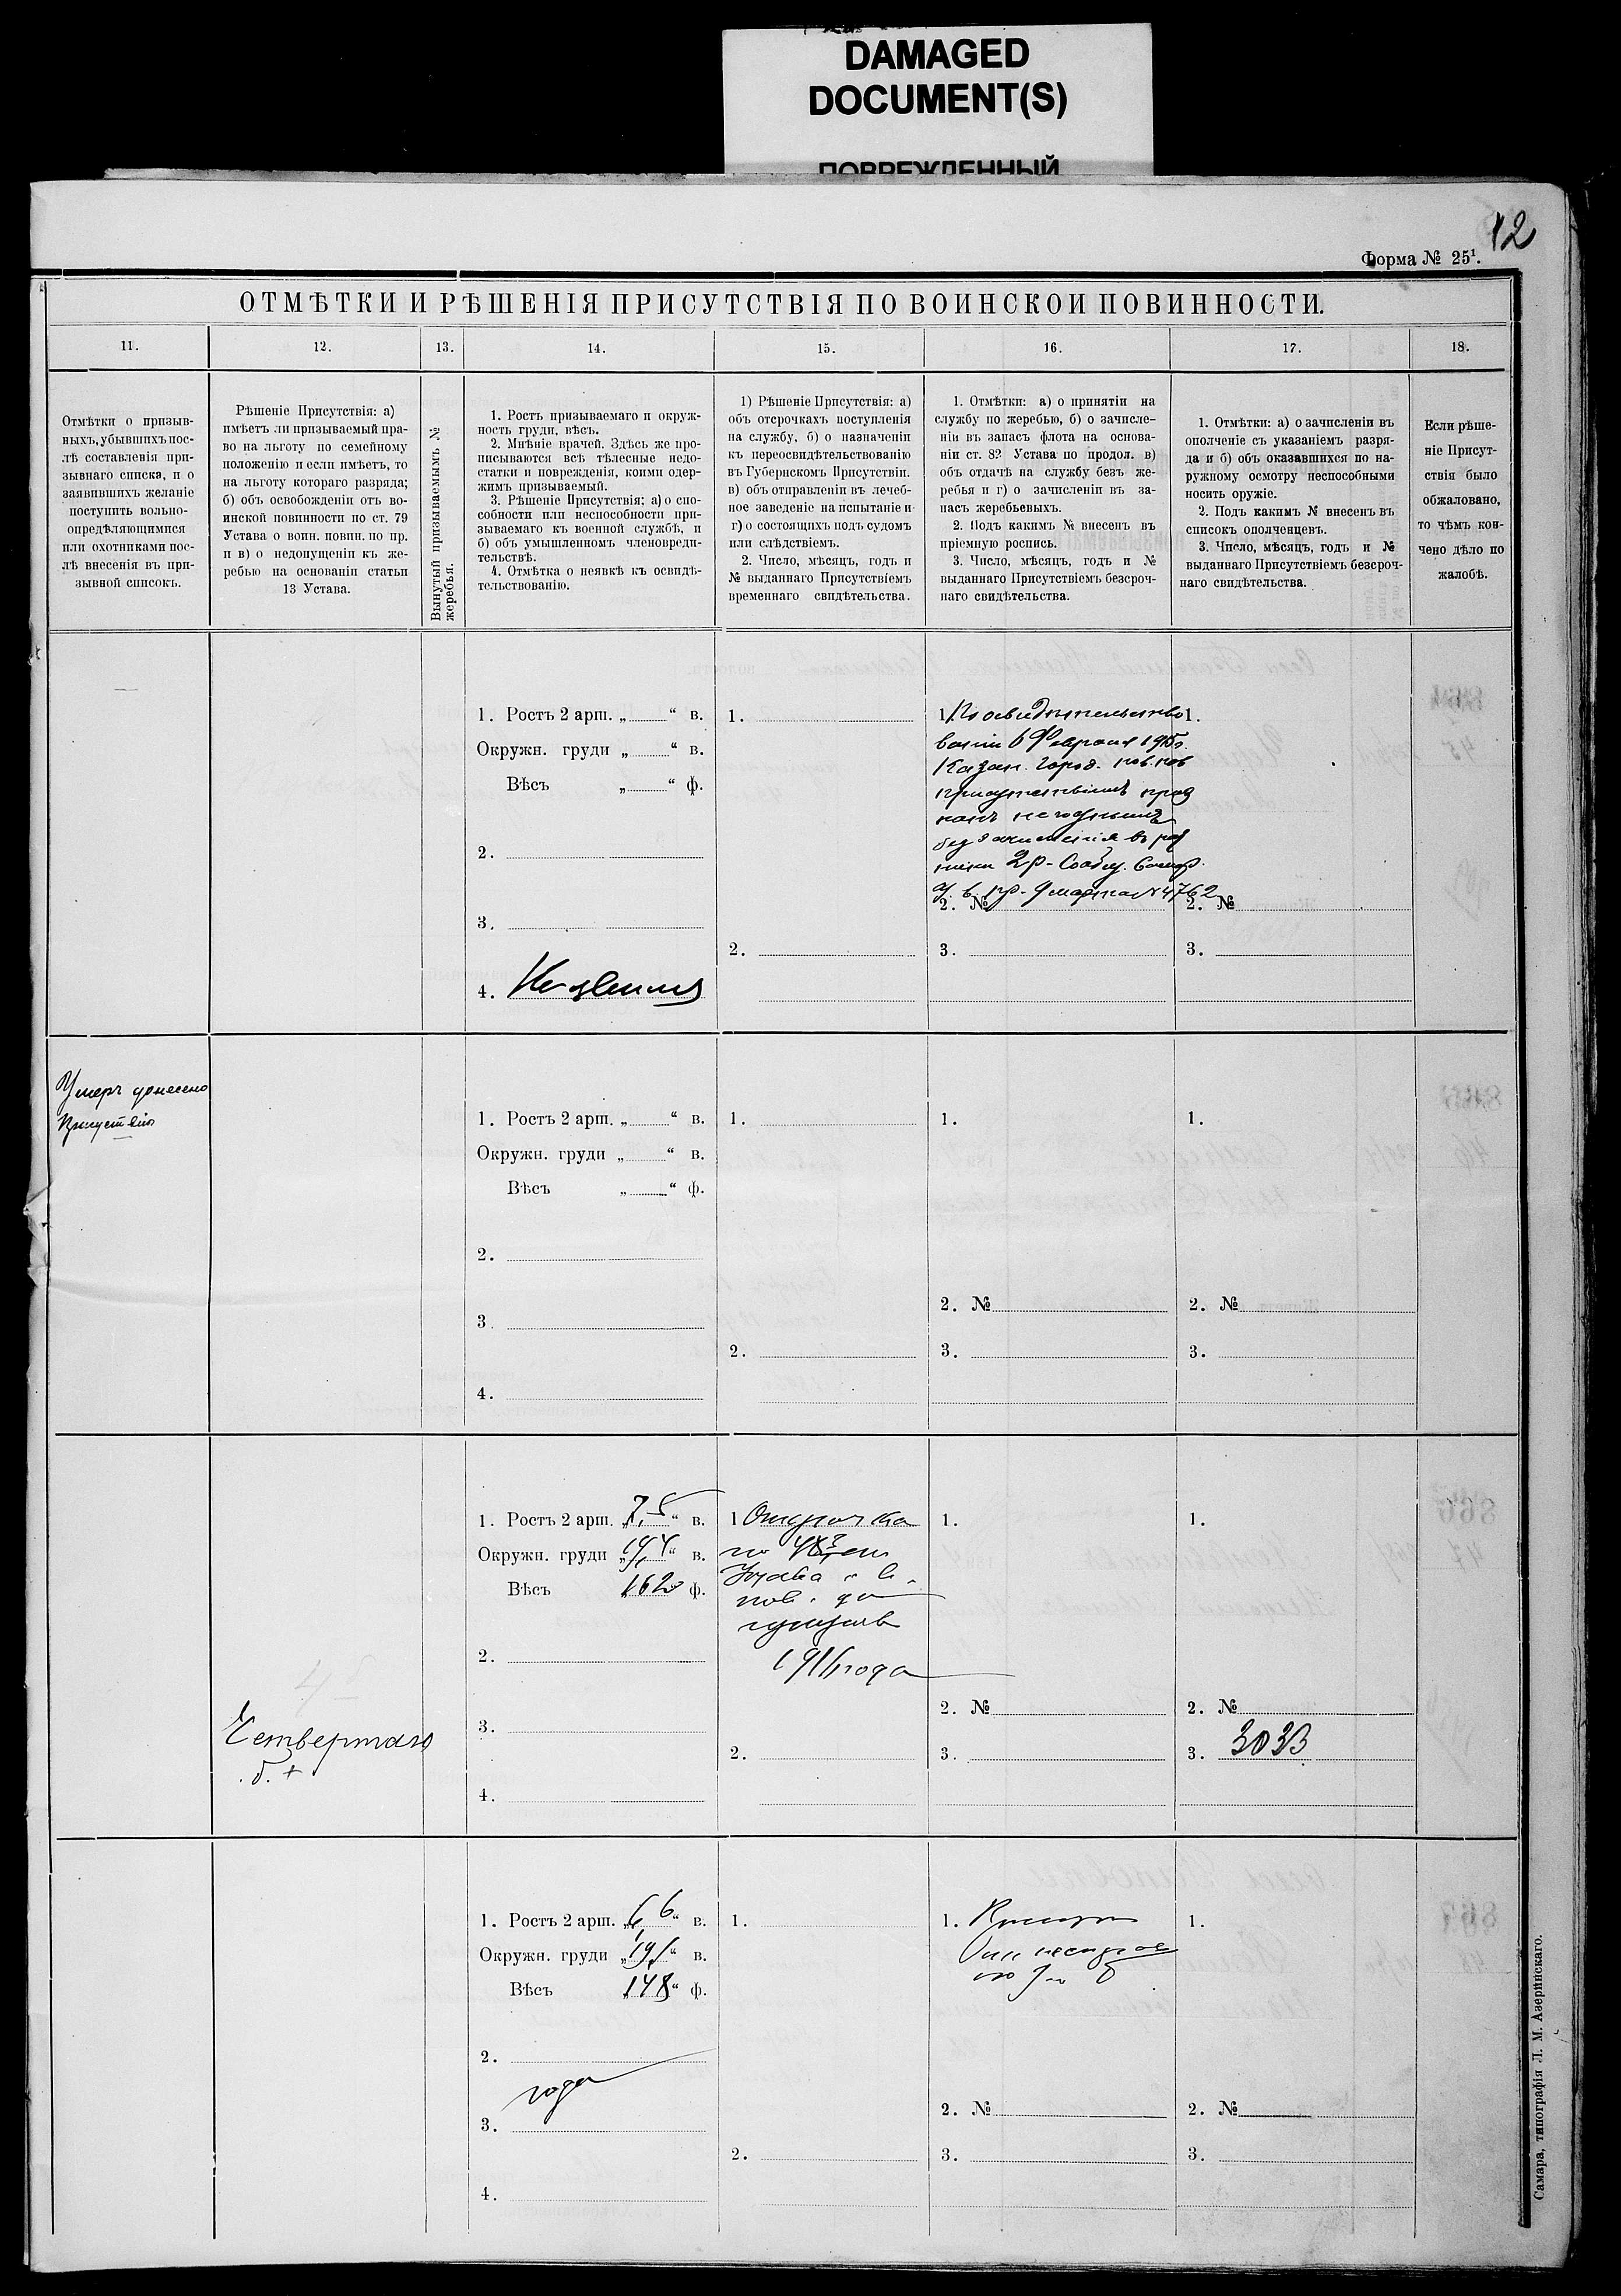 DAMAGED
DOCUMENT(S)
ПОВРЕЖДЕННЫЙ
12
Форма № 25¹.
ОТМѢТКИ И РѢШЕНІЯ ПРИСУТСТВІЯ ПО ВОИНСКОЙ ПОВИННОСТИ.
11.
12.
13.
14.
15.
16.
17.
18.
Отмѣтки о призыв-
ныхъ, убывшихъ пос-
лѣ составленія при-
зывнаго списка, и о
заявившихъ желаніе
поступить вольно-
опредѣляющимися
или охотниками пос-
лѣ внесенія въ при-
зывной списокъ.
Рѣшеніе Присутствія: а)
имѣетъ ли призываемый пра-
во на льготу по семейному
положенію и если имѣетъ, то
на льготу котораго разряда;
б) объ освобожденіи отъ во-
инской повинности по ст. 79
Устава о воин. повин. по пр.
и в) о недопущеніи къ же-
ребью на основаніи статьи
13 Устава.
Вынутый призываемымъ №
жеребья.
1. Ростъ призываемаго и окруж-
ность груди, вѣсъ.
2. Мнѣніе врачей. Здѣсь же про-
писываются всѣ тѣлесные недо-
статки и поврежденія, коими одер-
жимъ призываемый.
3. Рѣшеніе Присутствія: а) о спо-
собности или неспособности при-
зываемаго къ военной службѣ, и
б) объ умышленномъ членовреди-
тельствѣ.
4. Отмѣтка о неявкѣ къ освидѣ-
тельствованію.
1) Рѣшеніе Присутствія: а)
объ отсрочкахъ поступленія
на службу, б) о назначеніи
къ переосвидѣтельствованію
въ Губернскомъ Присутствіи.
в) объ отправленіи въ лечеб-
ное заведеніе на испытаніе и
г) о состоящихъ подъ судомъ
или слѣдствіемъ.
2. Число, мѣсяцъ, годъ и
№ выданнаго Присутствіемъ
временнаго свидѣтельства.
1. Отмѣтки: а) о принятіи на
службу по жеребью, б) о зачисле-
ніи въ запасъ флота на основа-
ніи ст. 82 Устава по продол. в)
объ отдачѣ на службу безъ же-
ребья и г) о зачисленіи въ за-
пасъ жеребьевыхъ.
2. Подъ какимъ № внесенъ въ
пріемную роспись.
3. Число, мѣсяцъ, годъ и №
выданнаго Присутствіемъ безсроч-
наго свидѣтельства.
1. Отмѣтки: а) о зачисленіи въ
ополченіе съ указаніемъ разря-
да и б) объ оказавшихся по на-
ружному осмотру неспособными
носить оружіе.
2. Подъ какимъ № внесенъ въ
списокъ ополченцевъ.
3. Число, мѣсяцъ, годъ и №
выданнаго Присутствіемъ безсроч-
наго свидѣтельства.
Если рѣше-
ніе Присут-
ствія было
обжаловано,
то чѣмъ кон-
чено дѣло по
жалобѣ.
1. Ростъ 2 арш. „ “ в.
Окружн. груди „ “ в.
Вѣсъ „ “ ф.
2.
3.
4. Не явился
1.
2.
1. По освидѣтельство
ваніи 6 Февраля
Казан. Город. по в. пов
присутствіемъ приз
нанъ негоднымъ
без зачисленія въ рат
ники 2 р.
9 марта № 4762
2. №
3.
1.
2. №
3.
Умеръ донесено
Присутствію
1. Ростъ 2 арш. „ “ в.
Окружн. груди „ “ в.
Вѣсъ „ “ ф.
2.
3.
4.
1.
2.
1.
2. №
3.
1.
2. №
3.
Четвертаго
1. Ростъ 2 арш. „7,5“ в.
Окружн. груди „19,4“ в.
Вѣсъ 162 ф.
2.
3.
4.
1 Отсрочка
по
Устава о в.
пов. до
призыва
года
2.
1.
2. №
3.
1.
2. №
3. 3033
1. Ростъ 2 арш. „6,6“ в.
Окружн. груди „19,1“ в.
Вѣсъ „148“ ф.
2.
годен
3.
4.
1.
2.
1. Принятъ
2. №
3.
1.
2. №
3.
Самара, типографія Л. М. Азеринскаго.